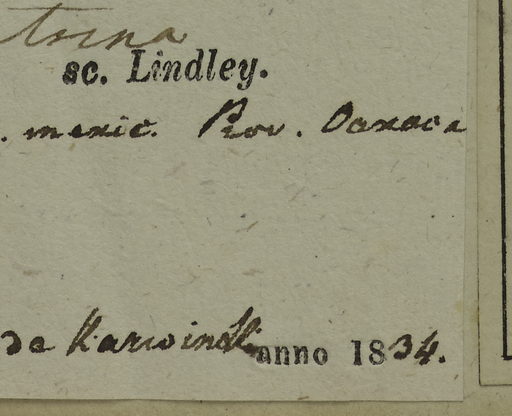 torna
sc. Lindley.
. mexic. Prov. Oaxaca
de Karwinski anno 1834.